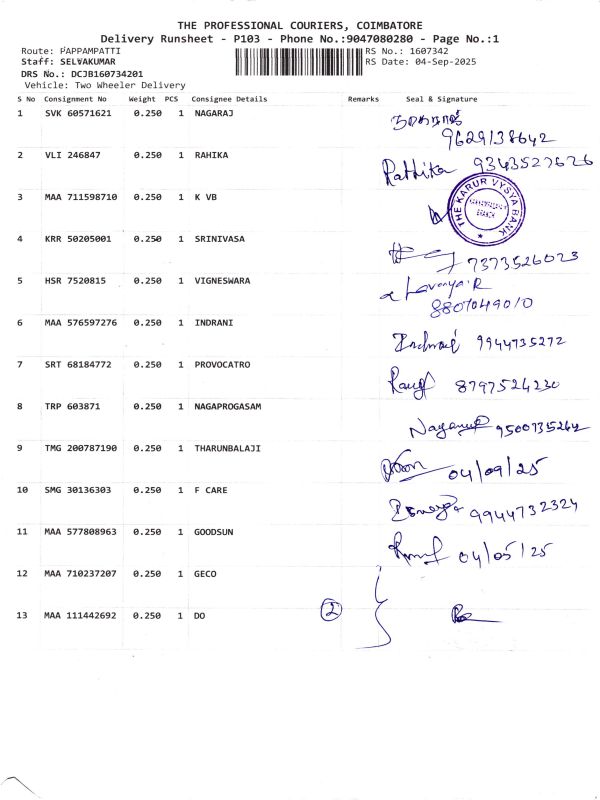 THE PROFESSIONAL COURIERS, COIMBATORE
Delivery Runsheet - P103 - Phone No.:9047080280 - Page No.:1
Route: PAPPAMPATTI RS No.: 1607342
Staff: SELVAKUMAR RS Date: 04-Sep-2025
DRS No.: DCJB160734201
Vehicle: Two Wheeler Delivery
S No Consignment No Weight PCS Consignee Details Remarks Seal & Signature
1 SVK 60571621 0.250 1 NAGARAJ நாகராஜ்
9629138642
2 VLI 246847 0.250 1 RAHIKA Rathika 9343527626
3 MAA 711598710 0.250 1 K VB THE KARUR VYSYA BANK
BRANCH
4 KRR 50205001 0.250 1 SRINIVASA 7373526023
5 HSR 7520815 0.250 1 VIGNESWARA Lavanya.R
8807049010
6 MAA 576597276 0.250 1 INDRANI Indrani 9944735272
7 SRT 68184772 0.250 1 PROVOCATRO 8797524230
8 TRP 603871 0.250 1 NAGAPROGASAM 9500735264
9 TMG 200787190 0.250 1 THARUNBALAJI 04/09/25
10 SMG 30136303 0.250 1 F CARE 9944732324
11 MAA 577808963 0.250 1 GOODSUN 04/05/25
12 MAA 710237207 0.250 1 GECO
13 MAA 111442692 0.250 1 DO 2